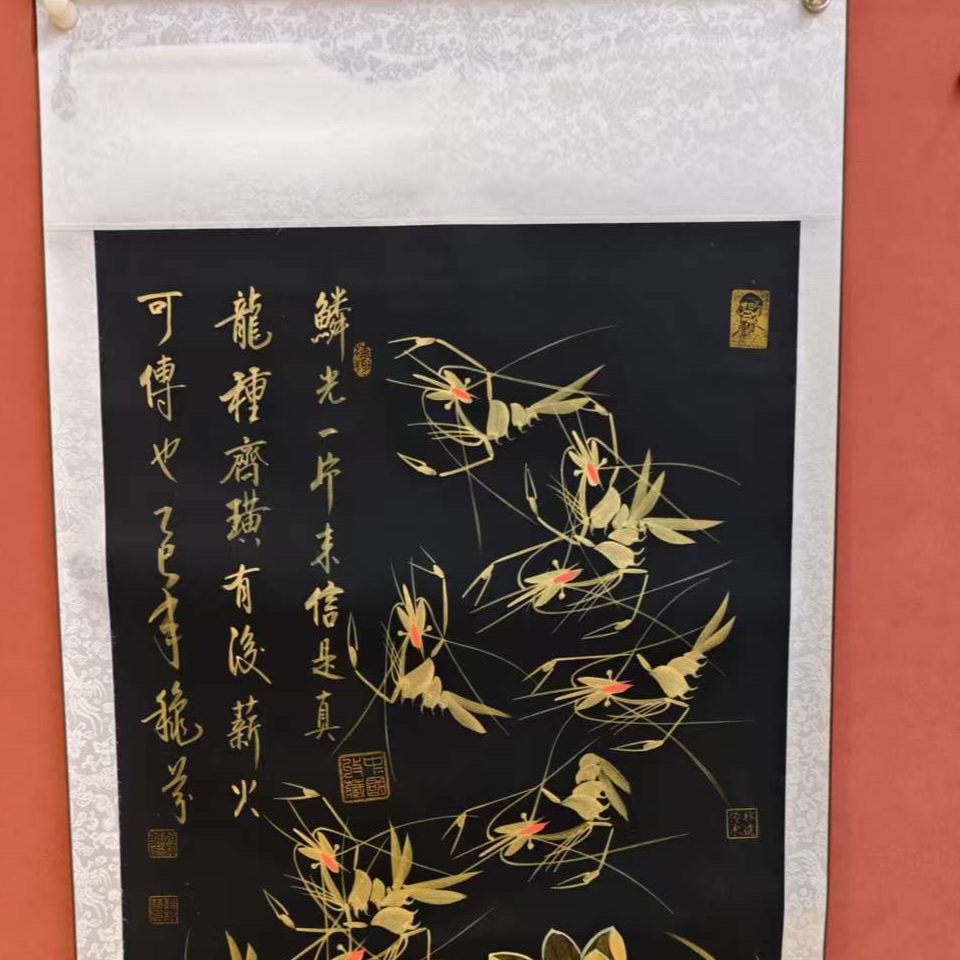 鱗光一片未信是真
龍種齊璜有後薪火
可傳也乙巳年穐芳